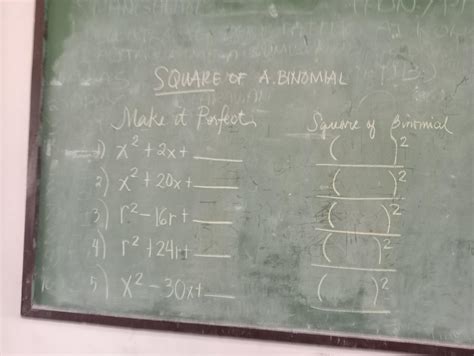 SQUARE OF A BINOMIAL
Make it Perfect Square of Binomial
1) x² + 2x + ____ ( )²
2) x² + 20x + ____ ( )²
3) r² - 16r + ____ ( )²
4) r² + 24r + ____ ( )²
5) x² - 30x + ____ ( )²